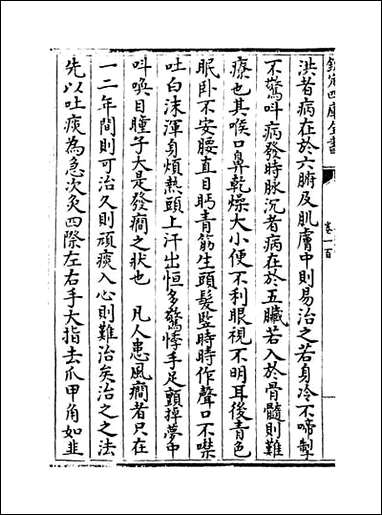 欽定四庫全書
卷一百
洪者病在於六腑及肌膚中則易治之若身冷不啼掣
不驚呌病發時脉沉者病在於五臟若入於骨髓則難
療也其喉口鼻乾燥大小便不利眼視不明耳後青色
眠卧不安腰直目眄青筋生頭髮竪時時作聲口不噤
吐白沫渾身煩熱頭上汗出恒多驚悸手足顫掉夢中
呌喚目瞳子大是發癎之狀也　凡人患風癎者只在
一二年間則可治久則頑痰入心則難治矣治之之法
先以吐痰為急次灸四際左右手大指去爪甲角如韭